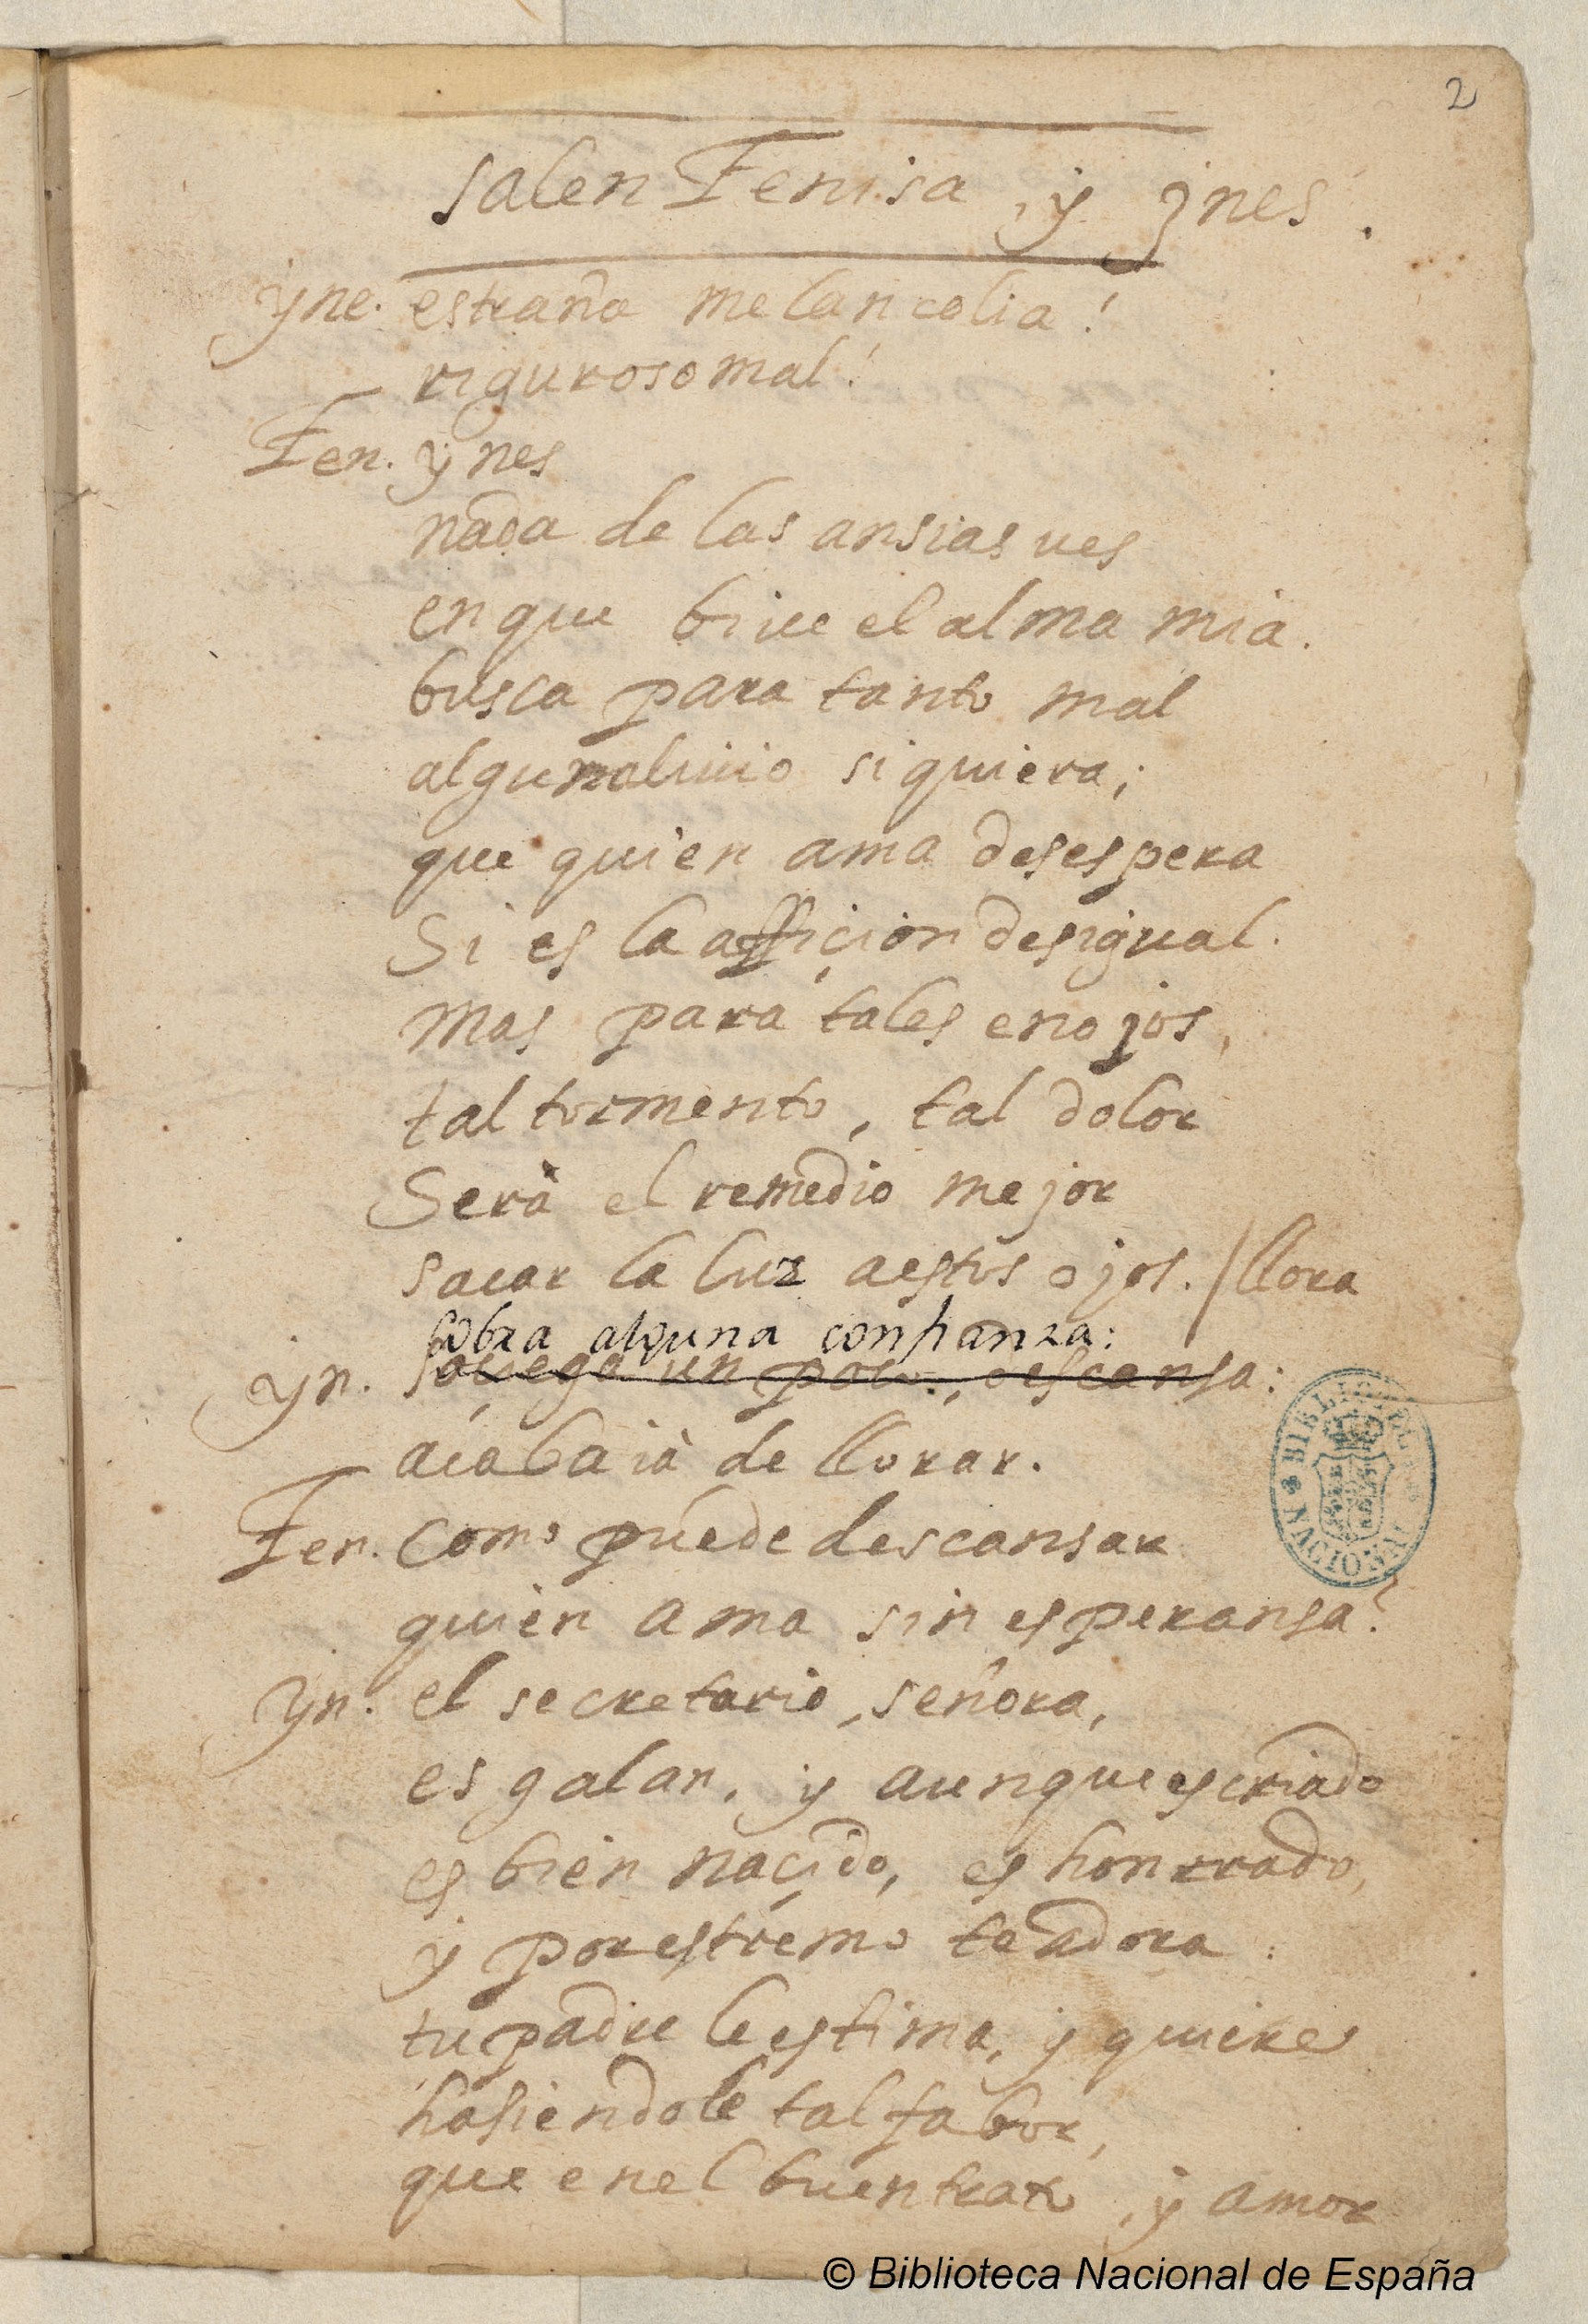 2
salen Fenisa, y ynes.
yne. estraña melancolia!
riguroso mal!
Fen. ynes
nada de las ansias ues
en que biue el alma mia.
busca para tanto mal
algun aliuio siquiera;
que quien ama desespera
Si es la afficion desigual.
mas para tales enojos,
tal tormento, tal dolor
Serà el remedio mejor
sacar la luz a estos ojos. / llora
cobra alguna confianza:
yn. sosiega un poco, descansa:
acaba ià de llorar.
Fen. Como puede descansar
quien ama sin esperansa?
yn. el secretario, señora,
es galan, y aunque es criado
es bien naçido, es honrrado,
y por estremo te adora:
tu padre le estima, y quiere
hasiendole tal fabor,
que en el buen trato, y amor
BIBLIOTECA NACIONAL
© Biblioteca Nacional de España